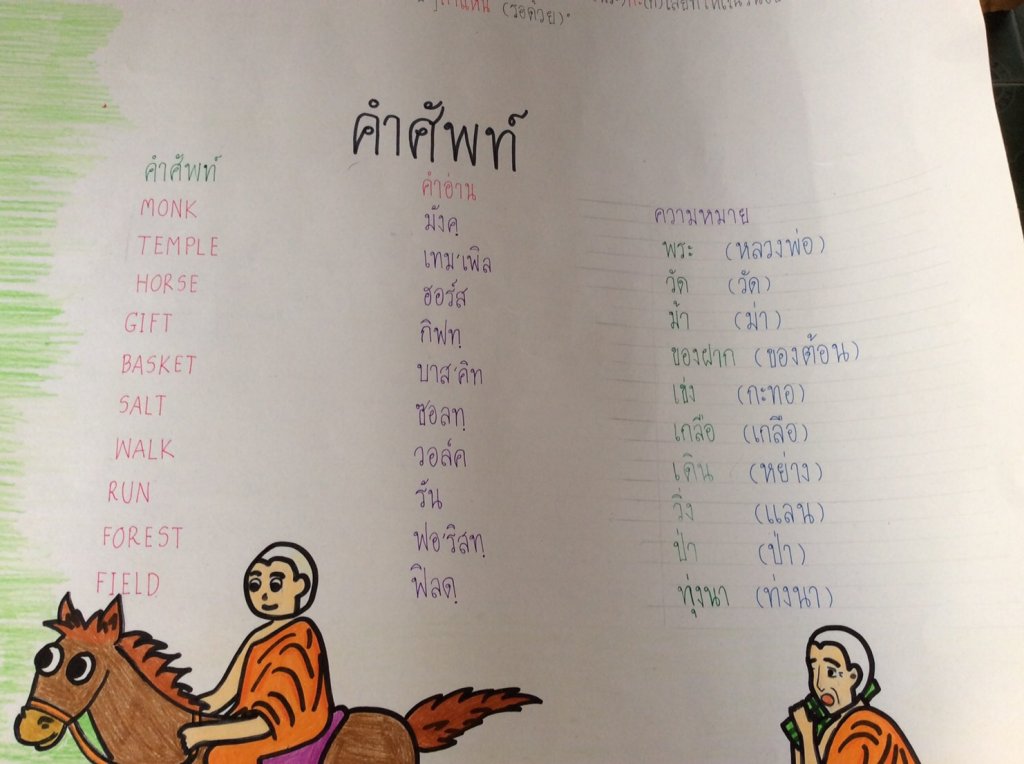 (รอด้วย)"
คำศัพท์
คำศัพท์ คำอ่าน ความหมาย
MONK มังคฺ พระ (หลวงพ่อ)
TEMPLE เทม'เพิล วัด (วัด)
HORSE ฮอร์ส ม้า (ม่า)
GIFT กิฟทฺ ของฝาก (ของต้อน)
BASKET บาส'คิท เข่ง (กะทอ)
SALT ซอลทฺ เกลือ (เกลือ)
WALK วอล์ค เดิน (หย่าง)
RUN รัน วิ่ง (แลน)
FOREST ฟอ'ริสทฺ ป่า (ป่า)
FIELD ฟิลดฺ ทุ่งนา (ท่งนา)